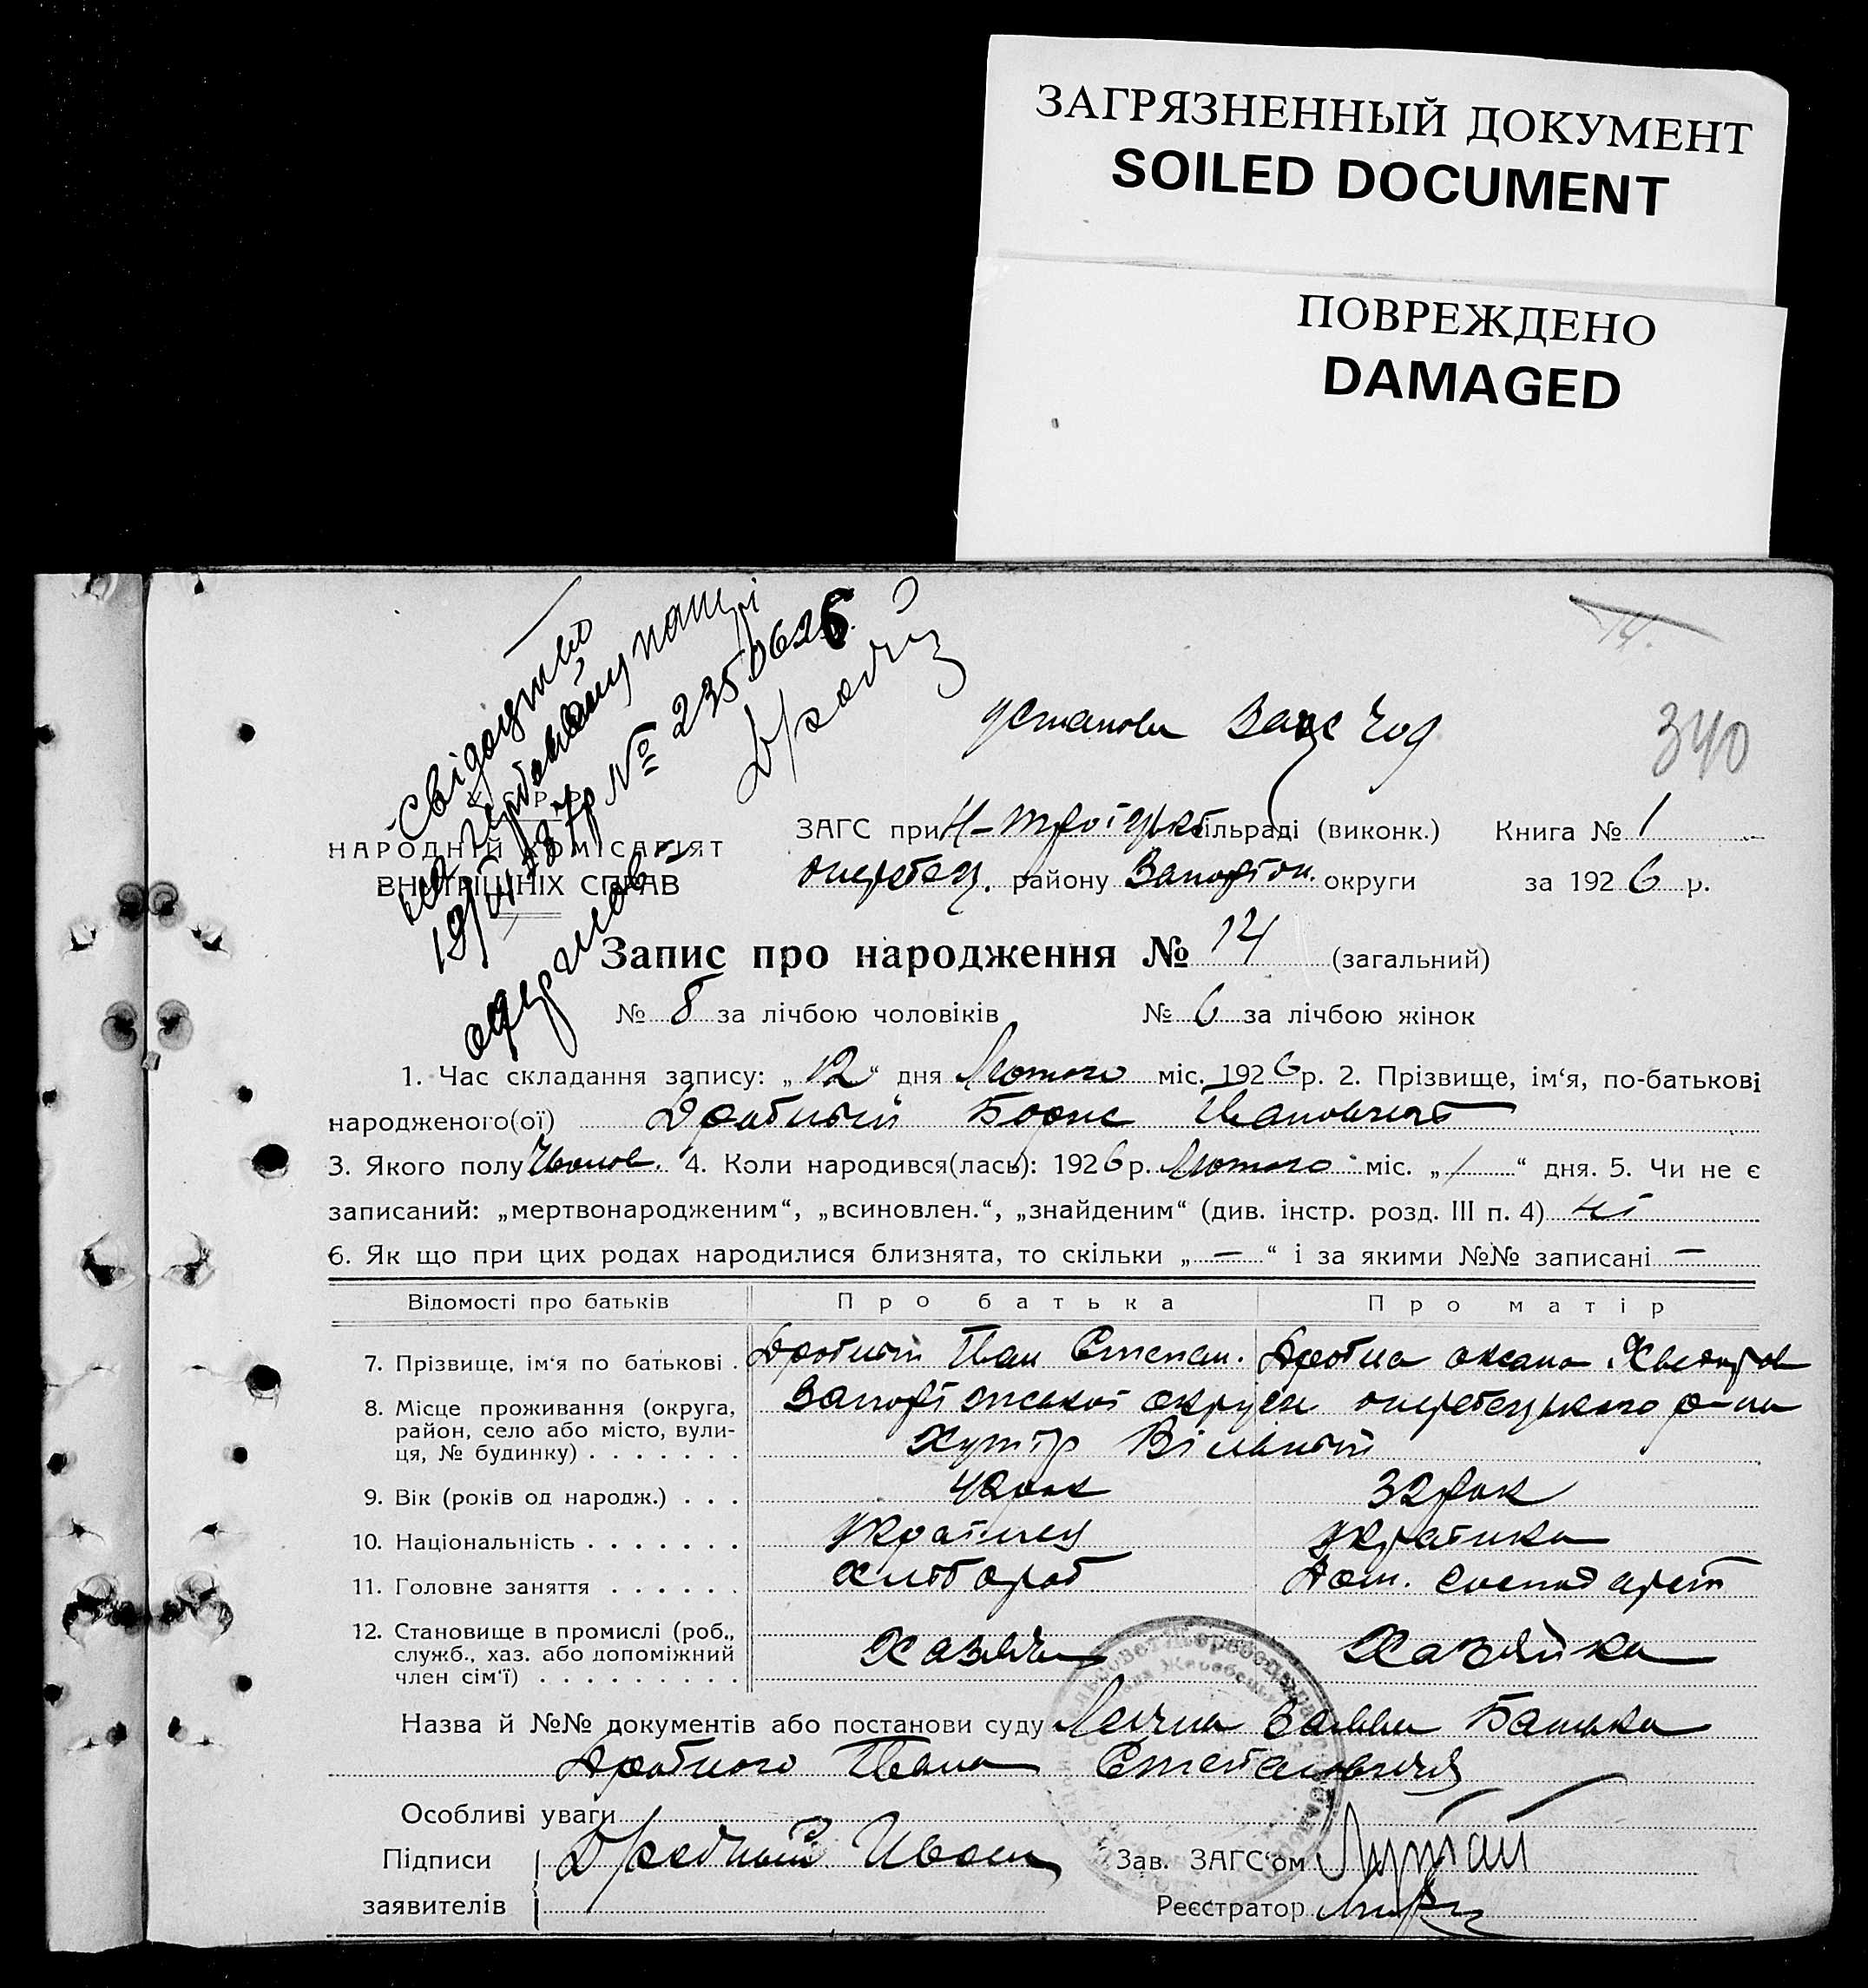 ЗАГРЯЗНЕННЫЙ ДОКУМЕНТ
SOILED DOCUMENT
ПОВРЕЖДЕНО
DAMAGED
340
Свідоцтво
на гербовому папері
19/II 37р № 2350626
одержав
Дробний
У. С. Р. Р.
НАРОДНІЙ КОМІСАРІЯТ
ВНУТРІШНІХ СПРАВ
установи Загс
ЗАГС при Н-Троїцькій сільраді (виконк.) Книга № 1
району округи за 1926 р.
Запис про народження № 14 (загальний)
№ 8 за лічбою чоловіків № 6 за лічбою жінок
1. Час складання запису: „12“ дня Лютого міс. 1926 р. 2. Прізвище, ім‘я, по-батькові
народженого(ої) Дробний Борис Іванович
3. Якого полу Чолов. 4. Коли народився(лась): 1926 р. Лютого міс. „1“ дня. 5. Чи не є
записаний: „мертвонародженим“, „всиновлен.“, „знайденим“ (див. інстр. розд. III п. 4) ні
6. Як що при цих родах народилися близнята, то скільки „—“ і за якими №№ записані —
Відомості про батьків Про батька Про матір
7. Прізвище, ім‘я по батькові . Дробний Іван Степан. Дробна Оксана Хведорів
8. Місце проживання (округа, район, село або місто, вулиця, № будинку) . . . . . . . Запоріжської округи
Хутір Вільний
9. Вік (років од народж.) . . . 42 рок 32 рок
10. Національність . . . . . . . Українец Українка
11. Головне заняття . . . . . . Хлібороб Дом. господарст
12. Становище в промислі (роб., служб., хаз. або допоміжний член сім‘ї) . . . . . . . . . Хазяїн Хазяйка
Назва й №№ документів або постанови суду Лична Заява Батька
Дробного Івана Степановича
Особливі уваги
Підписи заявителів Дробний Иван
Зав. ЗАГС‘ом
Реєстратор